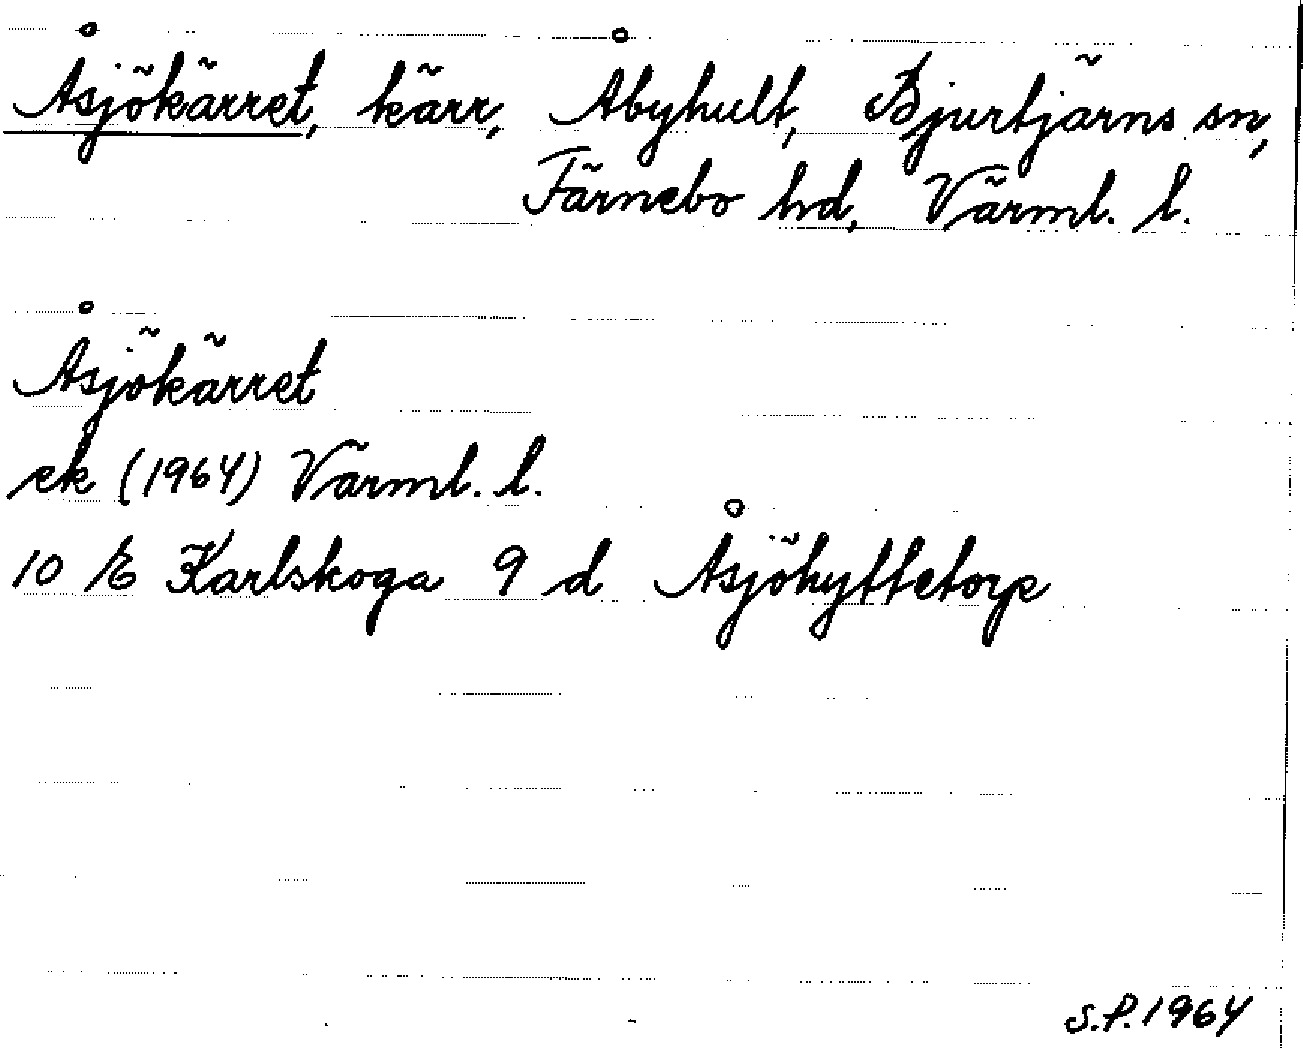 Åsjökärret, kärr, Åbyhult, Bjurtjärns sn,
Färnebo hd, Värml. l.
Åsjökärret
ek (1964) Värml. l.
10 E Karlskoga 9 d Åsjöhyttetorp
S.P. 1964